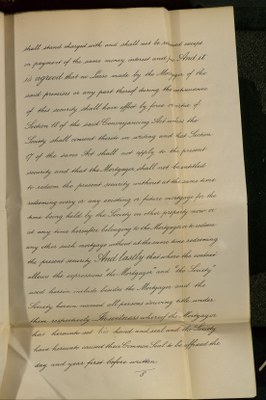 shall stand charged with and shall not be redeemed except
on payment of the same money interest and And it
is agreed that no Lease made by the Mortgagor of the
said premises or any part thereof during the continuance
of this security shall have effect by force or virtue of
Section 18 of the said Conveyancing Act unless the
Society shall consent thereto in writing and that Section
17 of the same Act shall not apply to the present
security and that the Mortgagor shall not be entitled
to redeem the present security without at the same time
redeeming every or any existing or future mortgage for the
time being held by the Society on other property now or
at any time hereafter belonging to the Mortgagor or to redeem
any other such mortgage without at the same time redeeming
the present security And lastly that where the context
allows the expressions "the Mortgagor" and "the Society"
used herein include besides the Mortgagor and the
Society herein named all persons deriving title under
them respectively In witness whereof the Mortgagor
has hereunto set his hand and seal and the Society
have hereunto caused their Common Seal to be affixed the
day and year first before written